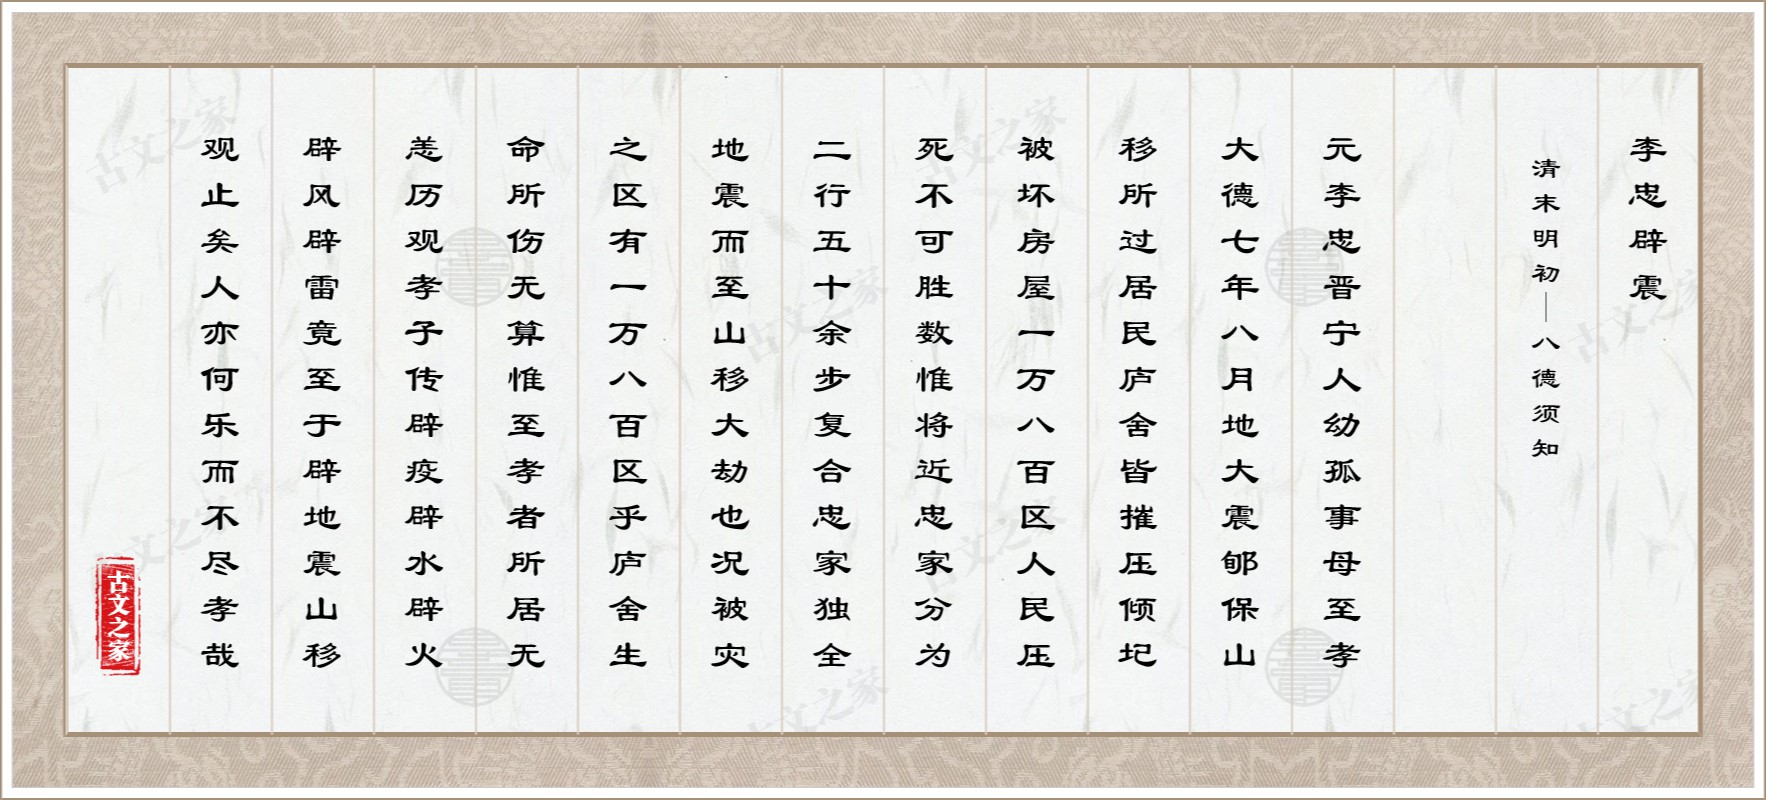 李忠辟震
清末明初—八德须知
元李忠晋宁人幼孤事母至孝
大德七年八月地大震郇保山
移所过居民庐舍皆摧压倾圮
被坏房屋一万八百区人民压
死不可胜数惟将近忠家分为
二行五十余步复合忠家独全
地震而至山移大劫也况被灾
之区有一万八百区乎庐舍生
命所伤无算惟至孝者所居无
恙历观孝子传辟疫辟水辟火
辟风辟雷竟至于辟地震山移
观止矣人亦何乐而不尽孝哉
古文之家